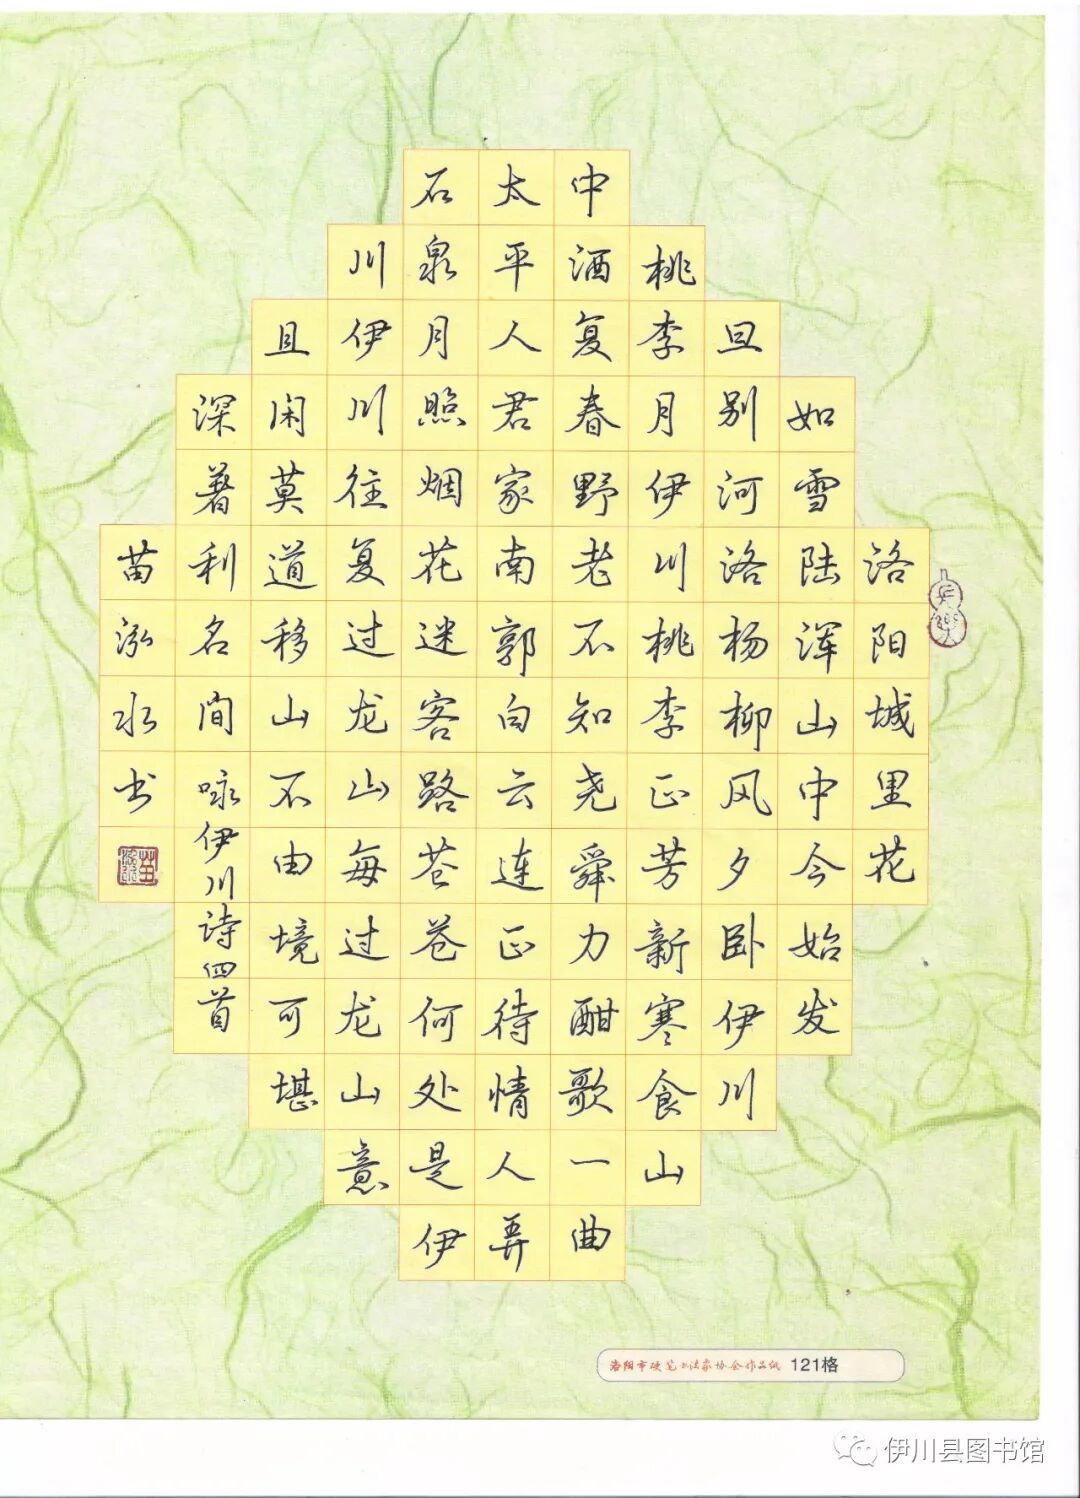 洛阳城里花
如雪陆浑山中今始发
旦别河洛杨柳风夕卧伊川
桃李月伊川桃李正芳新寒食山
中酒复春野老不知尧舜力酣歌一曲
太平人君家南郭白云连正待情人弄
石泉月照烟花迷客路苍苍何处是伊
川伊川往复过龙山每过龙山意
且闲莫道移山不由境可堪
深著利名间咏伊川诗四首
苗泓水书
洛阳市硬笔书法家协会作品纸 121格
伊川县图书馆